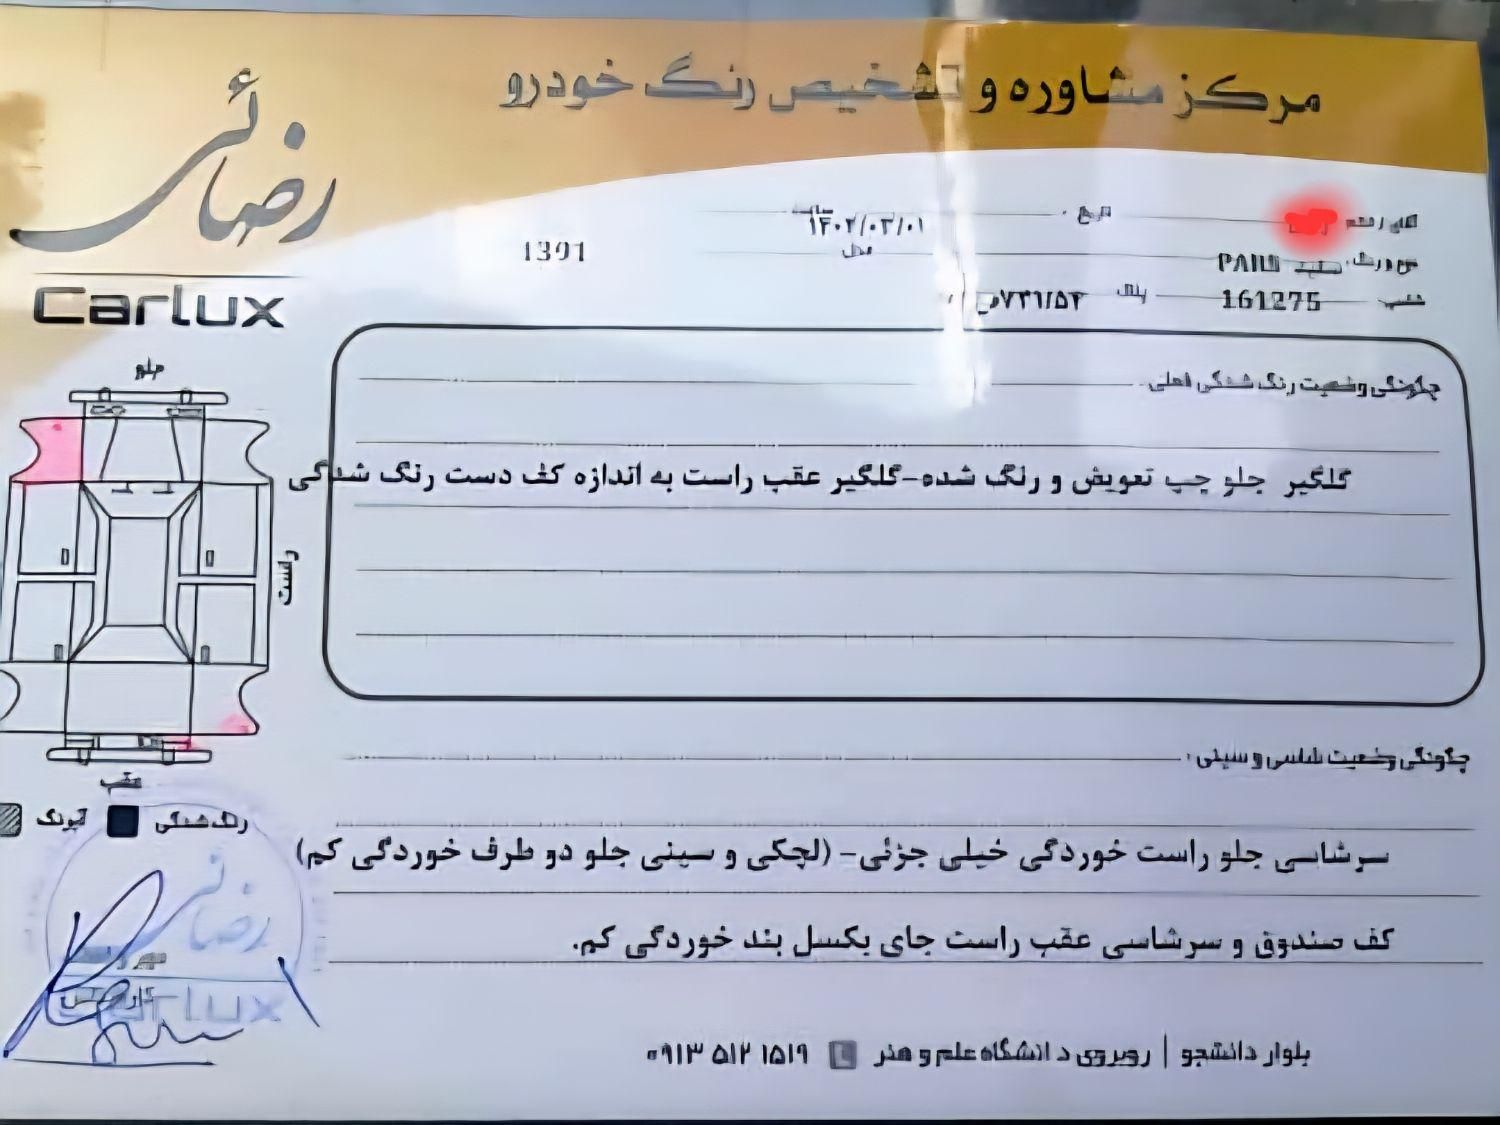 مرکز مشاوره و تشخیص رنگ خودرو
رضائی
Carlux
تاریخ: ۱۴۰۲/۰۳/۰۱
PARS سفید
مدل 1391
161275
پلاک
چگونگی وضعیت رنگ شدگی فعلی
گلگیر جلو چپ تعویض و رنگ شده-گلگیر عقب راست به اندازه کف دست رنگ شدگی
جلو
راست
عقب
رنگ شدگی
آبرنگ
چگونگی وضعیت شاسی و سینی:
سرشاسی جلو راست خوردگی خیلی جزئی- (لچکی و سینی جلو دو طرف خوردگی کم)
کف صندوق و سرشاسی عقب راست جای بکسل بند خوردگی کم.
رضائی
Carlux
بلوار دانشجو | روبروی دانشگاه علم و هنر ۰۹۱۳ ۵۱۲ ۱۵۱۹